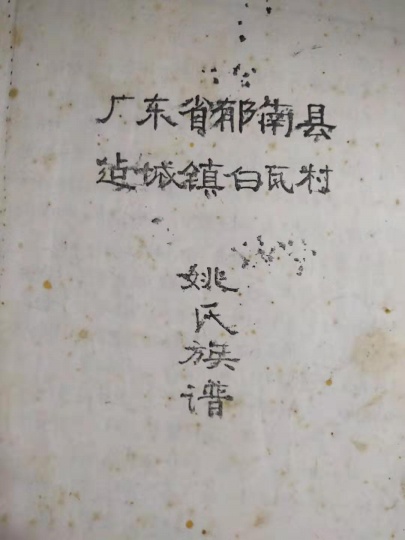 广东省郁南县
建城镇白瓦村
姚氏族谱